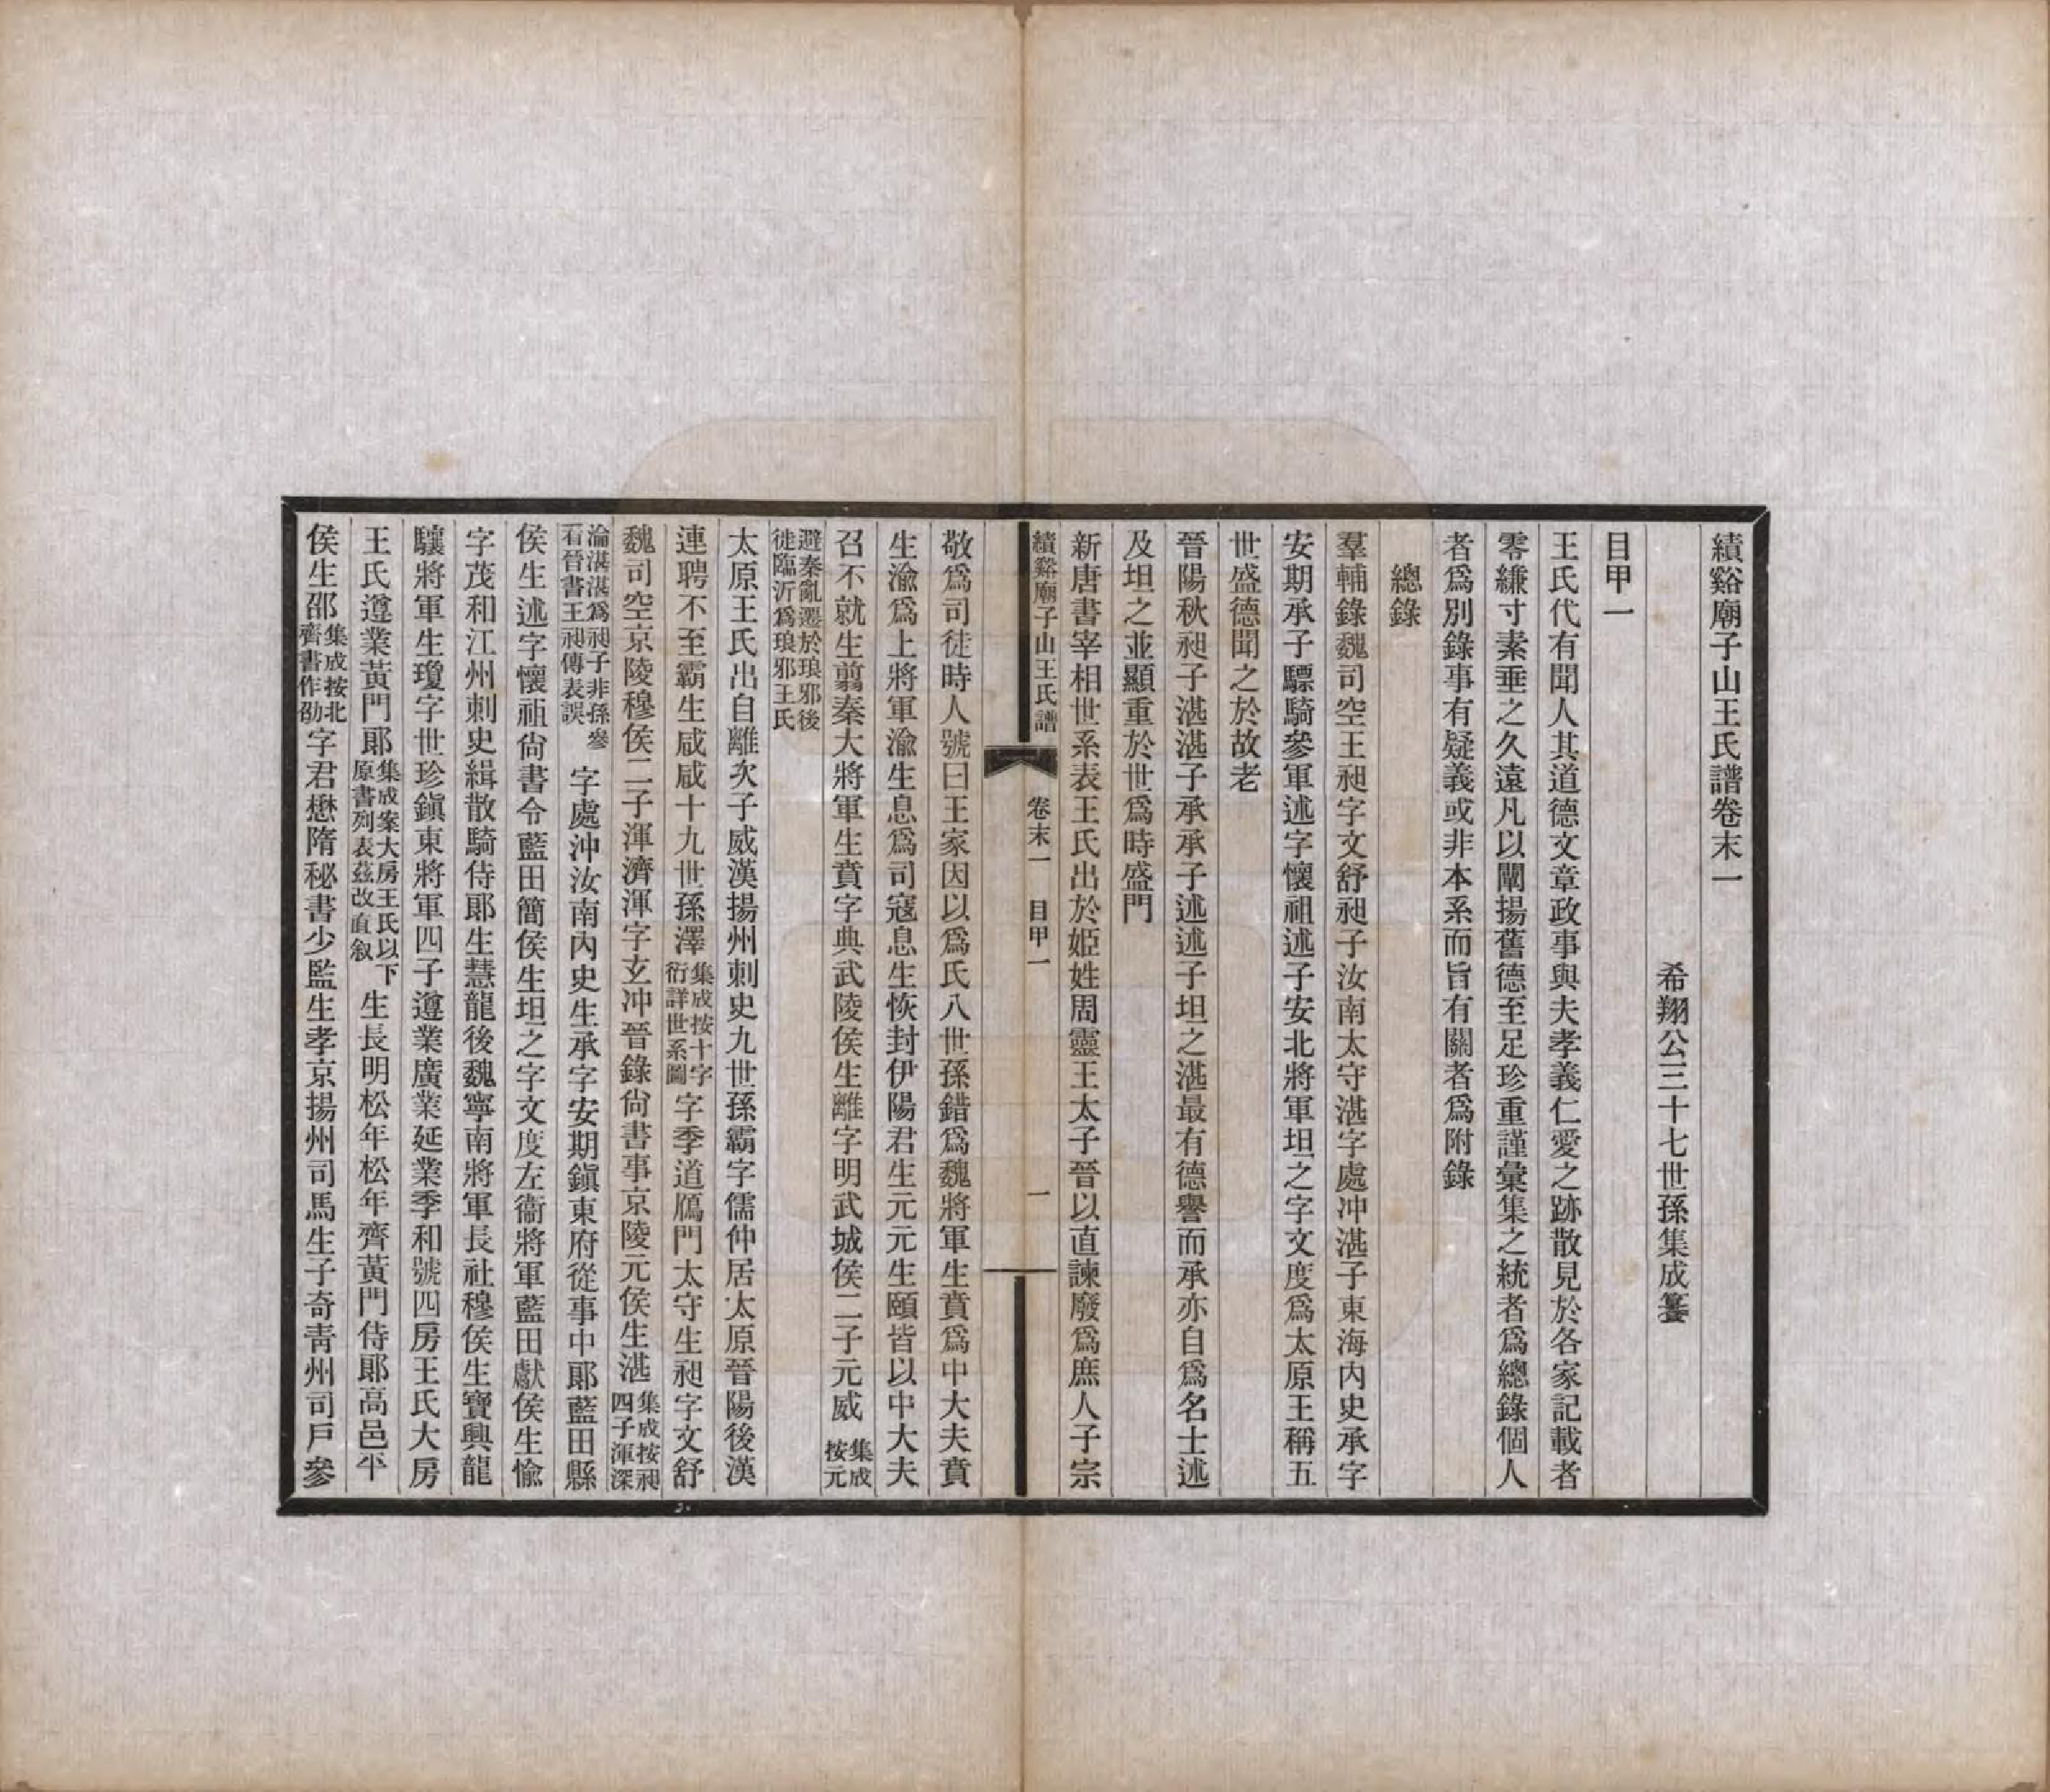 績谿廟子山王氏譜卷末一
希翔公三十七世孫集成纂
目甲一
王氏代有聞人其道德文章政事與夫孝義仁愛之跡散見於各家記載者
零縑寸素垂之久遠凡以闡揚舊德至足珍重謹彙集之統者爲總錄個人
者爲別錄事有疑義或非本系而旨有關者爲附錄
總錄
羣輔錄魏司空王昶字文舒昶子汝南太守湛字處冲湛子東海內史承字
安期承子驃騎參軍述字懷祖述子安北將軍坦之字文度爲太原王稱五
世盛德聞之於故老
晉陽秋昶子湛湛子承承子述述子坦之湛最有德譽而承亦自爲名士述
及坦之並顯重於世爲時盛門
新唐書宰相世系表王氏出於姬姓周靈王太子晉以直諫廢爲庶人子宗
績谿廟子山王氏譜 卷末一 目甲一 一
敬爲司徒時人號曰王家因以爲氏八世孫錯爲魏將軍生賁爲中大夫賁
生渝爲上將軍渝生息爲司寇息生恢封伊陽君生元元生頤皆以中大夫
召不就生翦秦大將軍生賁字典武陵侯生離字明武城侯二子元威 集成按元
避秦亂遷於琅邪後徙臨沂爲琅邪王氏
太原王氏出自離次子威漢揚州刺史九世孫霸字儒仲居太原晉陽後漢
連聘不至霸生咸咸十九世孫澤集成按十字衍詳世系圖字季道鴈門太守生昶字文舒
魏司空京陵穆侯二子渾濟渾字玄冲晉錄尙書事京陵元侯生湛集成按昶四子渾深
淪湛湛爲昶子非孫參看晉書王昶傳表誤字處沖汝南內史生承字安期鎭東府從事中郞藍田縣
侯生述字懷祖尙書令藍田簡侯生坦之字文度左衞將軍藍田獻侯生愉
字茂和江州刺史緝散騎侍郞生慧龍後魏寧南將軍長社穆侯生寶興龍
驤將軍生瓊字世珍鎭東將軍四子遵業廣業延業季和號四房王氏大房
王氏遵業黃門郞集成案大房王氏以下原書列表茲改直叙生長明松年松年齊黃門侍郞高邑平
侯生邵集成按北齊書作劭字君懋隋秘書少監生孝京揚州司馬生子奇靑州司戶參